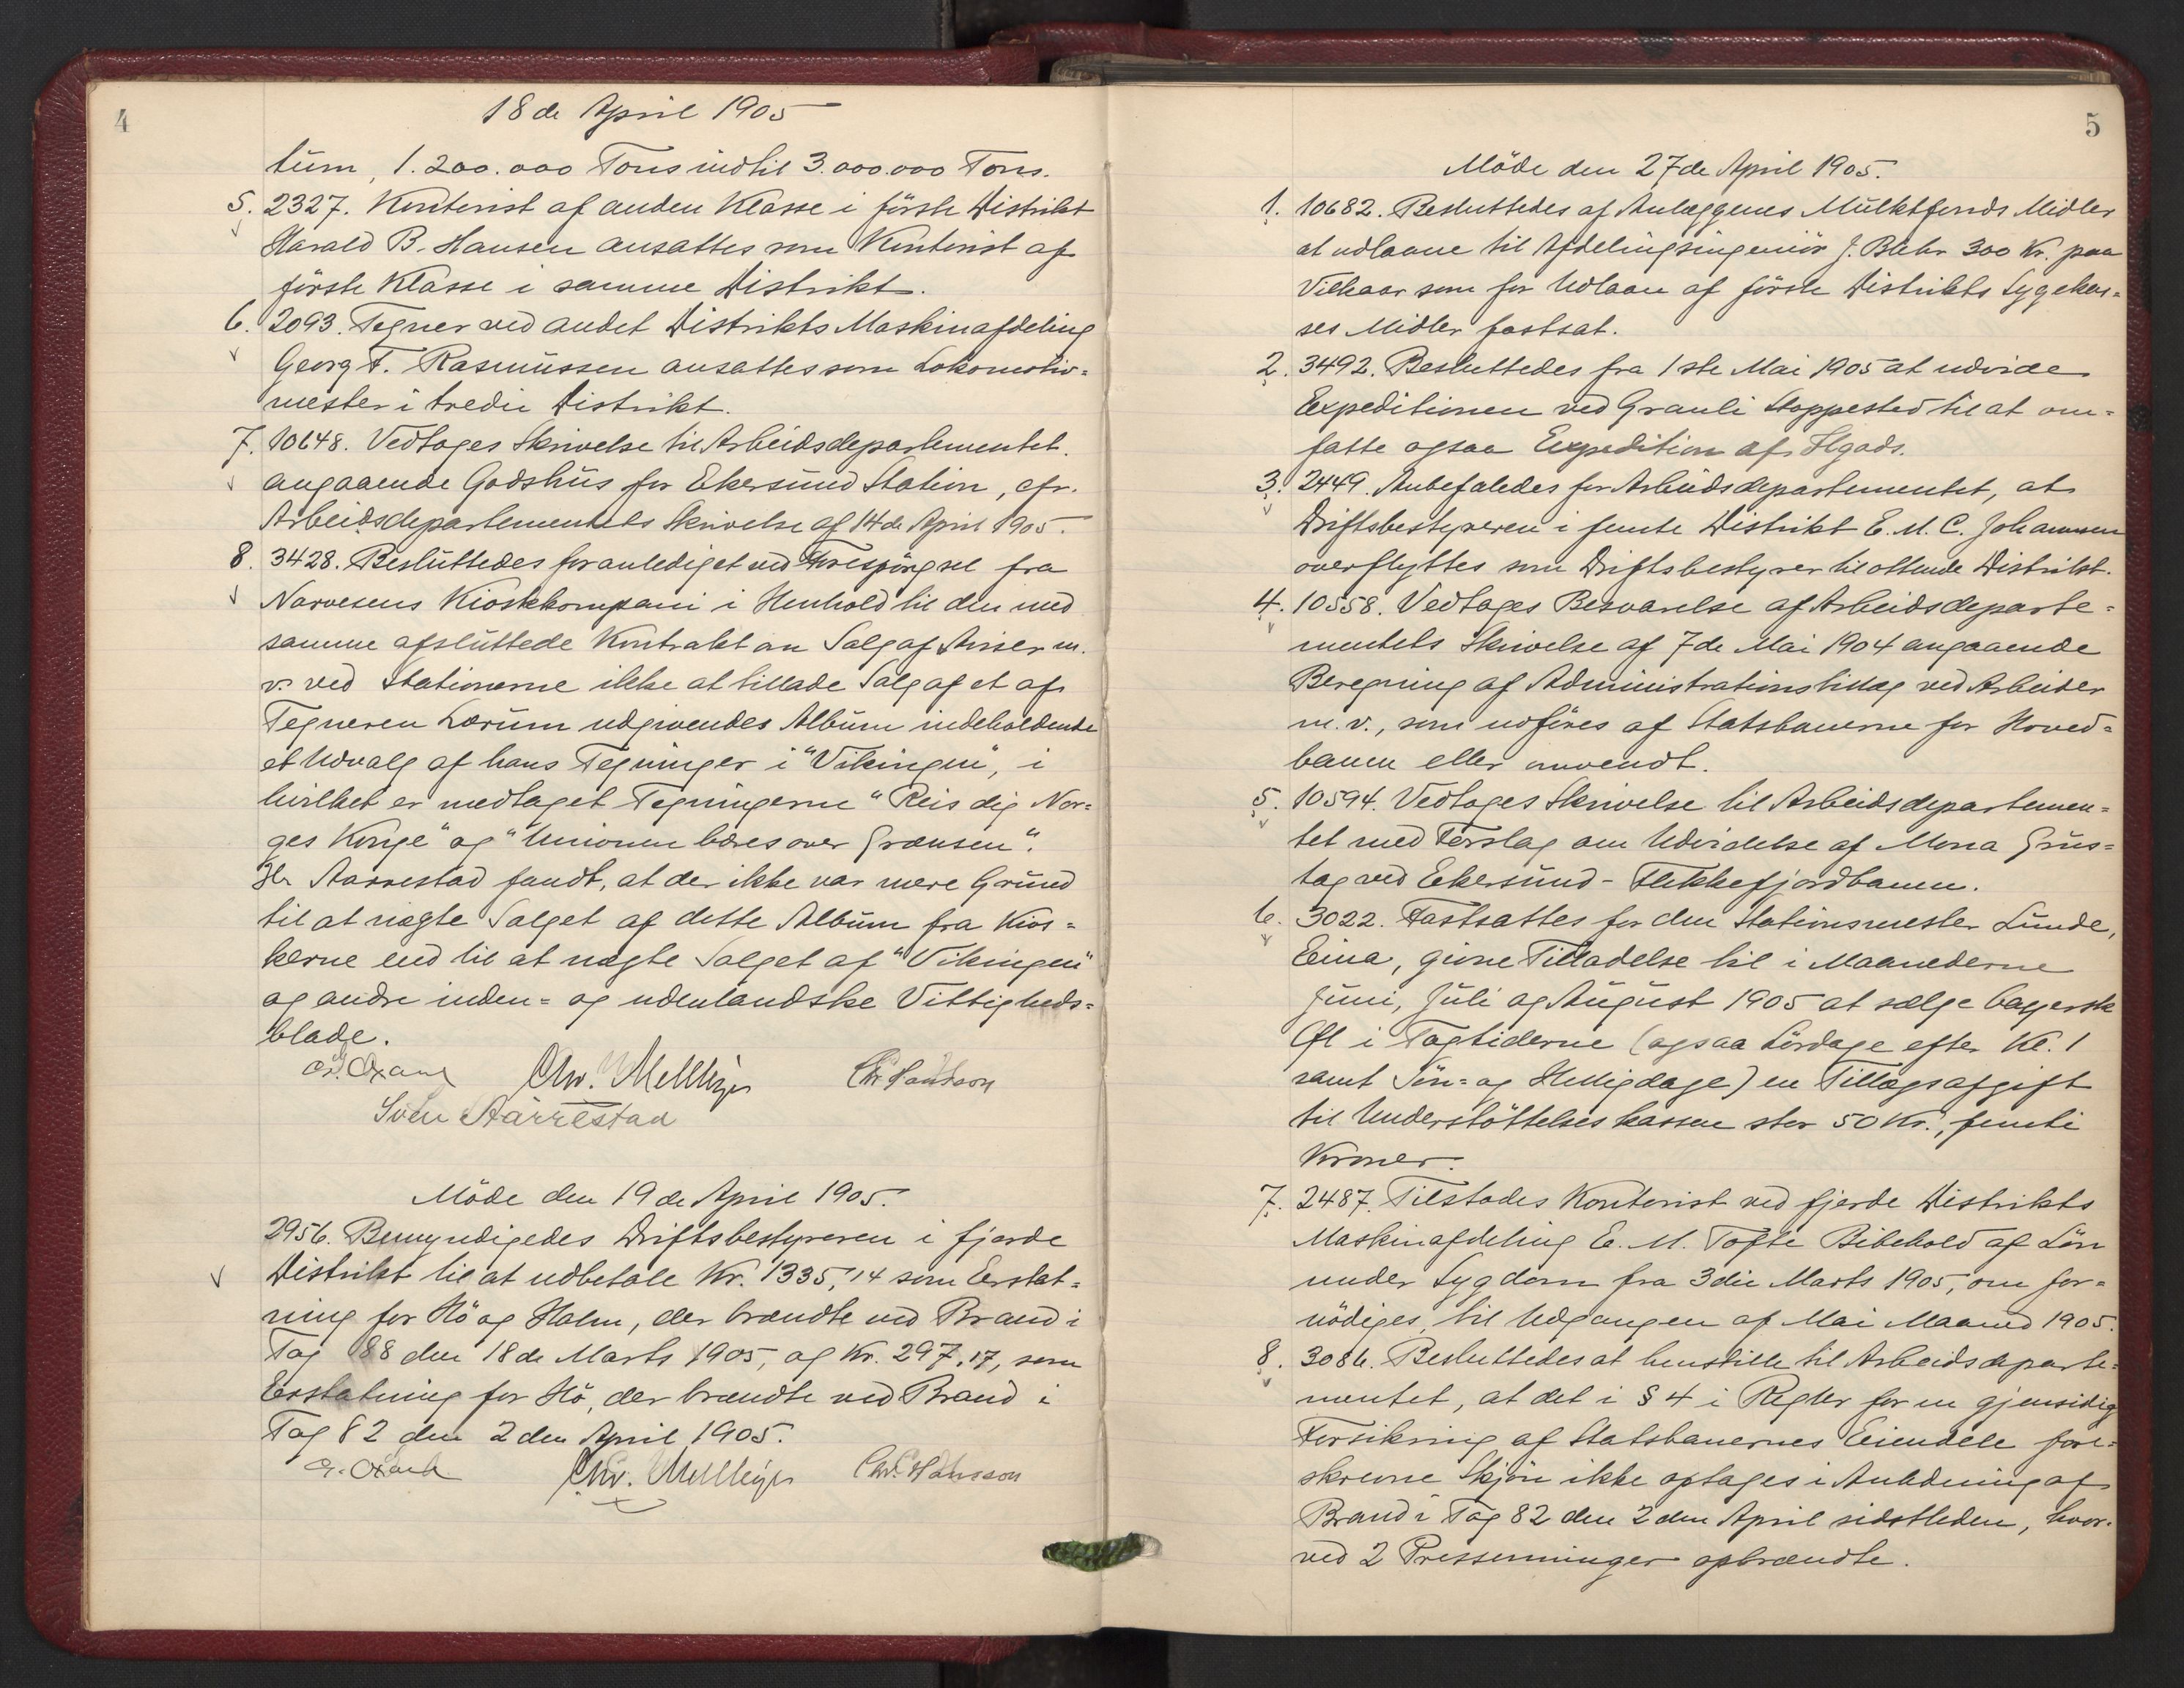 4
18de April 1905
tum, 1.200.000 Tons indtil 3.000.000 Tons.
5. 2327. Kontorist af anden Klasse i förste Distrikt
Harald B. Hansen ansattes som Kontorist af
förste Klasse i samme Distrikt.
6. 2093. Tegner ved andet Distrikts Maskinafdeling
Georg F. Rasmussen ansattes som Lokomotiv=
mester i tredie Distrikt.
7. 10648. Vedtoges Skrivelse til Arbeidsdepartementet
angaaende Godshus for Ekersund Station, cfr.
Arbeidsdepartementets Skrivelse af 14de April 1905.
8. 3428. Besluttedes foranlediget ved Forespörgsel fra
Narvesens Kioskkompani i Henhold til den med
samme afsluttede Kontrakt om Salg af Aviser m.
v. ved Stationerne ikke at tillade Salg af et af
Tegneren Lærum udgivendes Album indeholdende
et Udvalg af hans Tegninger i "Vikingen", i
hvilket er medtaget Tegningerne "Reis dig Nor=
ges Konge" og "Unionen bæres over Grænsen".
Hr Aarrestad fandt, at der ikke var mere Grund
til at nægte Salget af dette Album fra Kios=
kerne end til at nægte Salget af "Vikingen"
og andre inden= og udenlandske Vittigheds=
blade.
Chr. Platou
Sven Aarrestad
Möde den 19de April 1905.
2956. Bemyndigedes Driftsbestyreren i fjerde
Distrikt til at udbetale Kr. 1335,14 som Erstat=
ning for Hö og Halm, der brændte ved Brand i
Tog 88 den 18de Marts 1905, og Kr. 297,17, som
Erstatning for Hö, der brændte ved Brand i
Tog 82 den 2den April 1905.
5
Möde den 27de April 1905.
1. 10682. Besluttedes af Anlæggenes Mulktfonds Midler
at udlaane til Afdelingsingeniör J. Bahr 300 Kr. paa
Vilkaar som for Udlaan af förste Distrikts Sygekas=
ses Midler fastsat.
2. 3492. Besluttedes fra 1ste Mai 1905 at udvide
Expeditionen ved Grauli Stoppested til at om=
fatte ogsaa Expedition af Ilgods.
3. 2449. Anbefaledes for Arbeidsdepartementet, at
Driftsbestyreren i femte Distrikt E. M. C. Johannsen
overflyttes som Driftsbestyrer til ottende Distrikt.
4. 10558. Vedtoges Besvarelse af Arbeidsdeparte=
mentets Skrivelse af 7de Mai 1904 angaaende
Beregning af Administrationstillæg ved Arbeider
m.v., som udföres af Statsbanerne for Hoved=
banen eller omvendt.
5. 10594. Vedtoges Skrivelse til Arbeidsdepartemen=
tet med Forslag om Udvidelse af Mona Grus=
tag ved Ekersund-Flekkefjordbanen.
6. 3022. Fastsattes for den Stationsmester Lunde,
Eina, givne Tilladelse til i Maanederne
Juni, Juli og August 1905 at sælge bayersk
Öl i Togtiderne (ogsaa Lördage efter Kl. 1
samt Sön= og Helligdage) en Tillægsafgift
til Understöttelseskassen stor 50 Kr., femti
Kroner.
7. 2487. Tilstodes Kontorist ved fjerde Distrikts
Maskinafdeling E. M. Tofte Bibehold af Lön
under Sygdom fra 3die Marts 1905, om for=
nödiges, til Udgangen af Mai Maaned 1905.
8. 3086. Besluttedes at henstille til Arbeidsdeparte=
mentet, at det i § 4 i Regler for en gjensidig
Forsikring af Statsbanernes Eiendele fore=
skrevne Skjön ikke optages i Anledning af
Brand i Tog 82 den 2den April sidstleden, hvor=
ved 2 Pressenninger opbrændte.